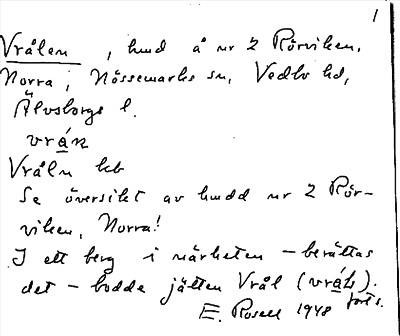 1
Vrålen, hmd å nr 2 Rörviken,
Norra; Nössemarks sn, Vedbo hd,
Älvsborgs l.
vrán
Vråln kb
Se översikt av hmdd nr 2 Rör-
viken, Norra!
I ett berg i närheten – berättas
det – bodde jätten Vrål (vrál).
E. Rosell 1948 forts.